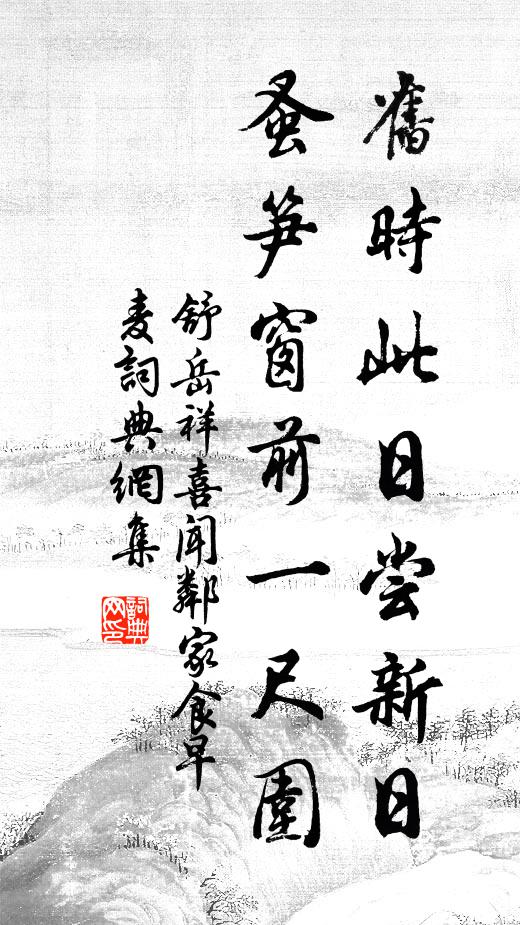 舊時此日尝新日
蚤笋窗前一尺圍
舒岳祥喜聞鄰家食早
麦詞典網集
詞典
网印